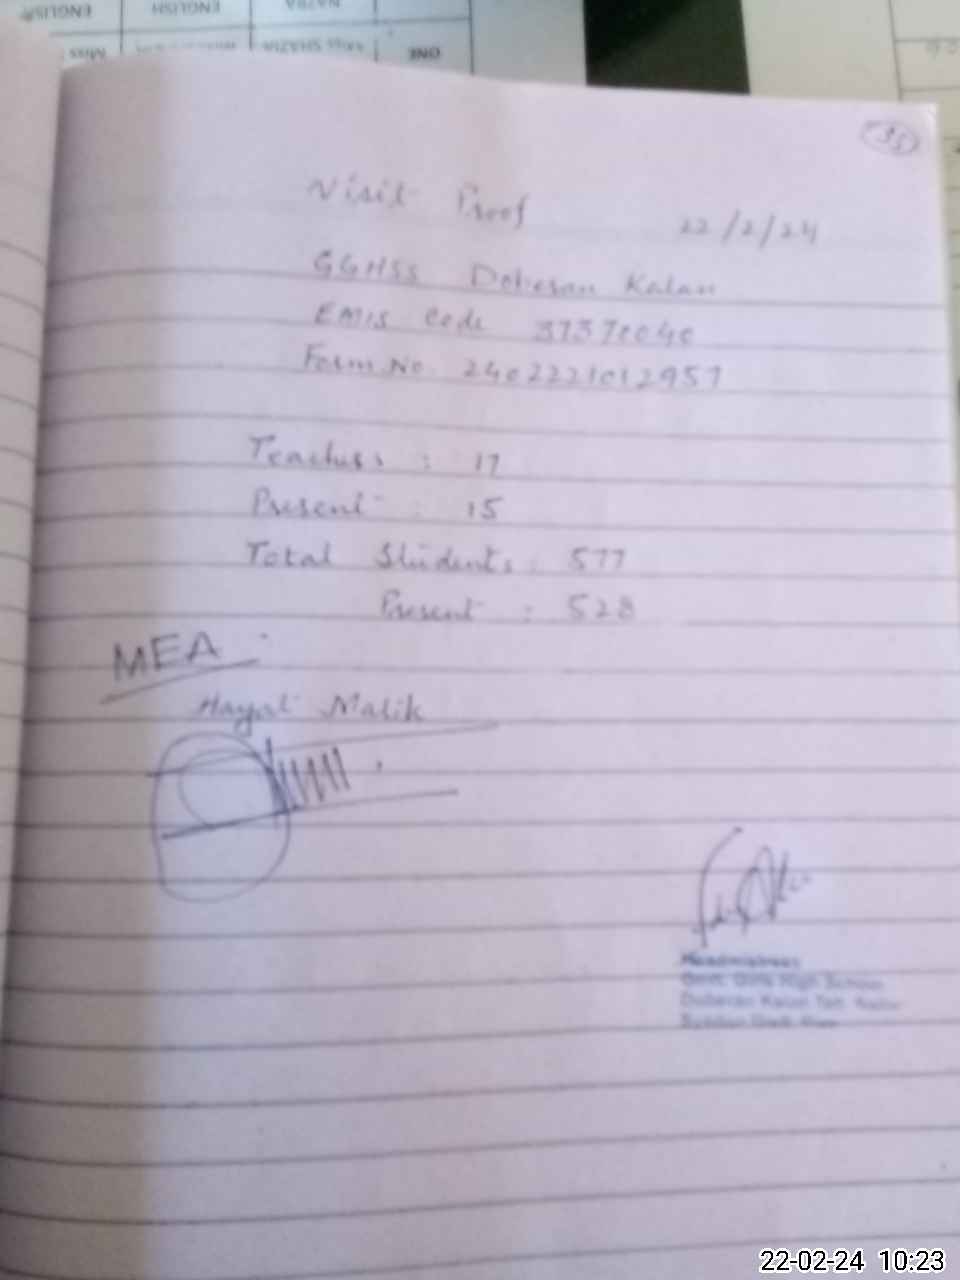 ENGLISH ENGLISH NAZRA
Miss Miss SHAZIA ONE
35
Visit Proof 22/2/24
GGHSS Doberan Kalan
EMIS Code 37370040
Form No. 2402221012957
Teachers : 17
Present : 15
Total Students : 577
Present : 528
MEA :
Hayat Malik
Headmistress
Govt. Girls High School
Doberan Kalan Teh.
22-02-24 10:23